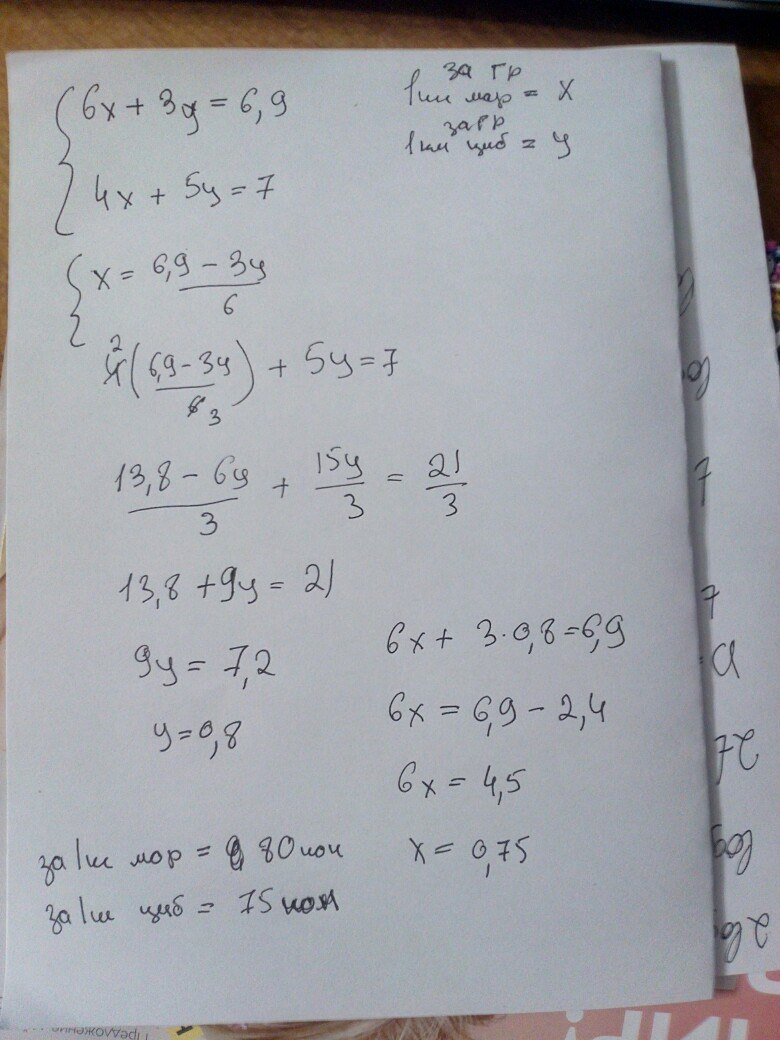 6x + 3y = 6,9
4x + 5y = 7
за гр
1 кг мор = x
за гр
1 кг циб = y
x = (6,9 - 3y)/6
2
4((6,9 - 3y)/6 3) + 5y = 7
(13,8 - 6y)/3 + 15y/3 = 21/3
13,8 + 9y = 21
9y = 7,2
y = 0,8
6x + 3·0,8 = 6,9
6x = 6,9 - 2,4
6x = 4,5
x = 0,75
за 1 кг мор = 80 коп
за 1 кг циб = 75 коп
7
7
log
2log
Предложение